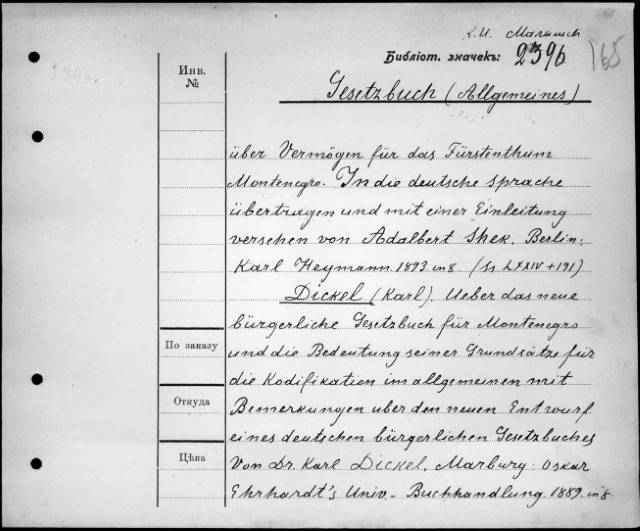 К.И. Малышев
Библіот. значекъ: 2396 165
Инв. №
Gesetzbuch (Allgemeines)
über Vermögen für das Fürstenthum
Montenegro. In die deutsche Sprache
übertragen und mit einer Einleitung
versehen von Adalbert Shek. Berlin:
Karl Heymann. 1893. in 8. (Ss. LXXIV + 191)
Dickel (Karl). Ueber das neue
bürgerliche Gesetzbuch für Montenegro
По заказу
und die Bedeutung seiner Grundsätze für
die Kodifikation im allgemeinen mit
Откуда
Bemerkungen uber den neuen Entwurf
eines deutschen bürgerlichen Gesetzbuches
Цѣна
Von Dr. Karl Dickel. Marburg. Oskar
Ehrhardt's Univ.- Buchhandlung 1889. in 8